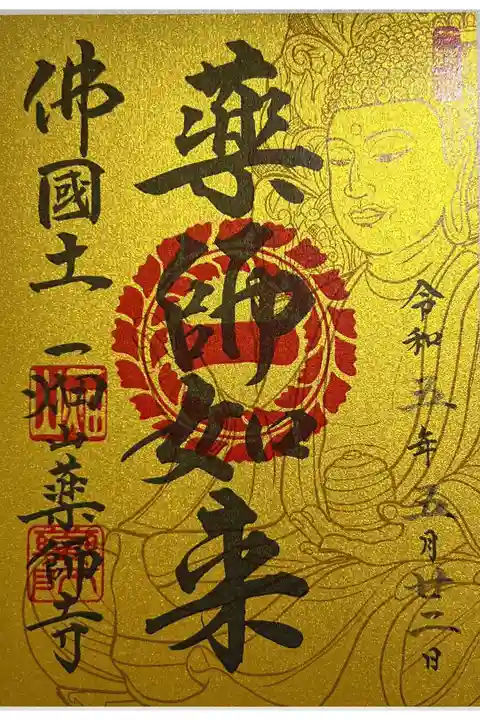 令和五年五月廿二日
薬師如来
佛國土
一畑山薬師寺